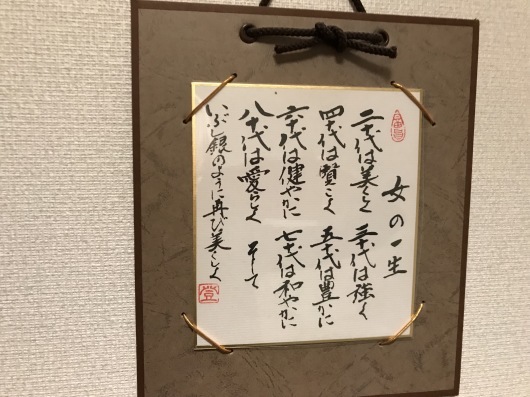 女の一生
二十代は美しく 三十代は強く
四十代は賢こく 五十代は豊かに
六十代は健やかに 七十代は和やかに
八十代は愛らしく そして
いぶし銀のように再び美しく
登